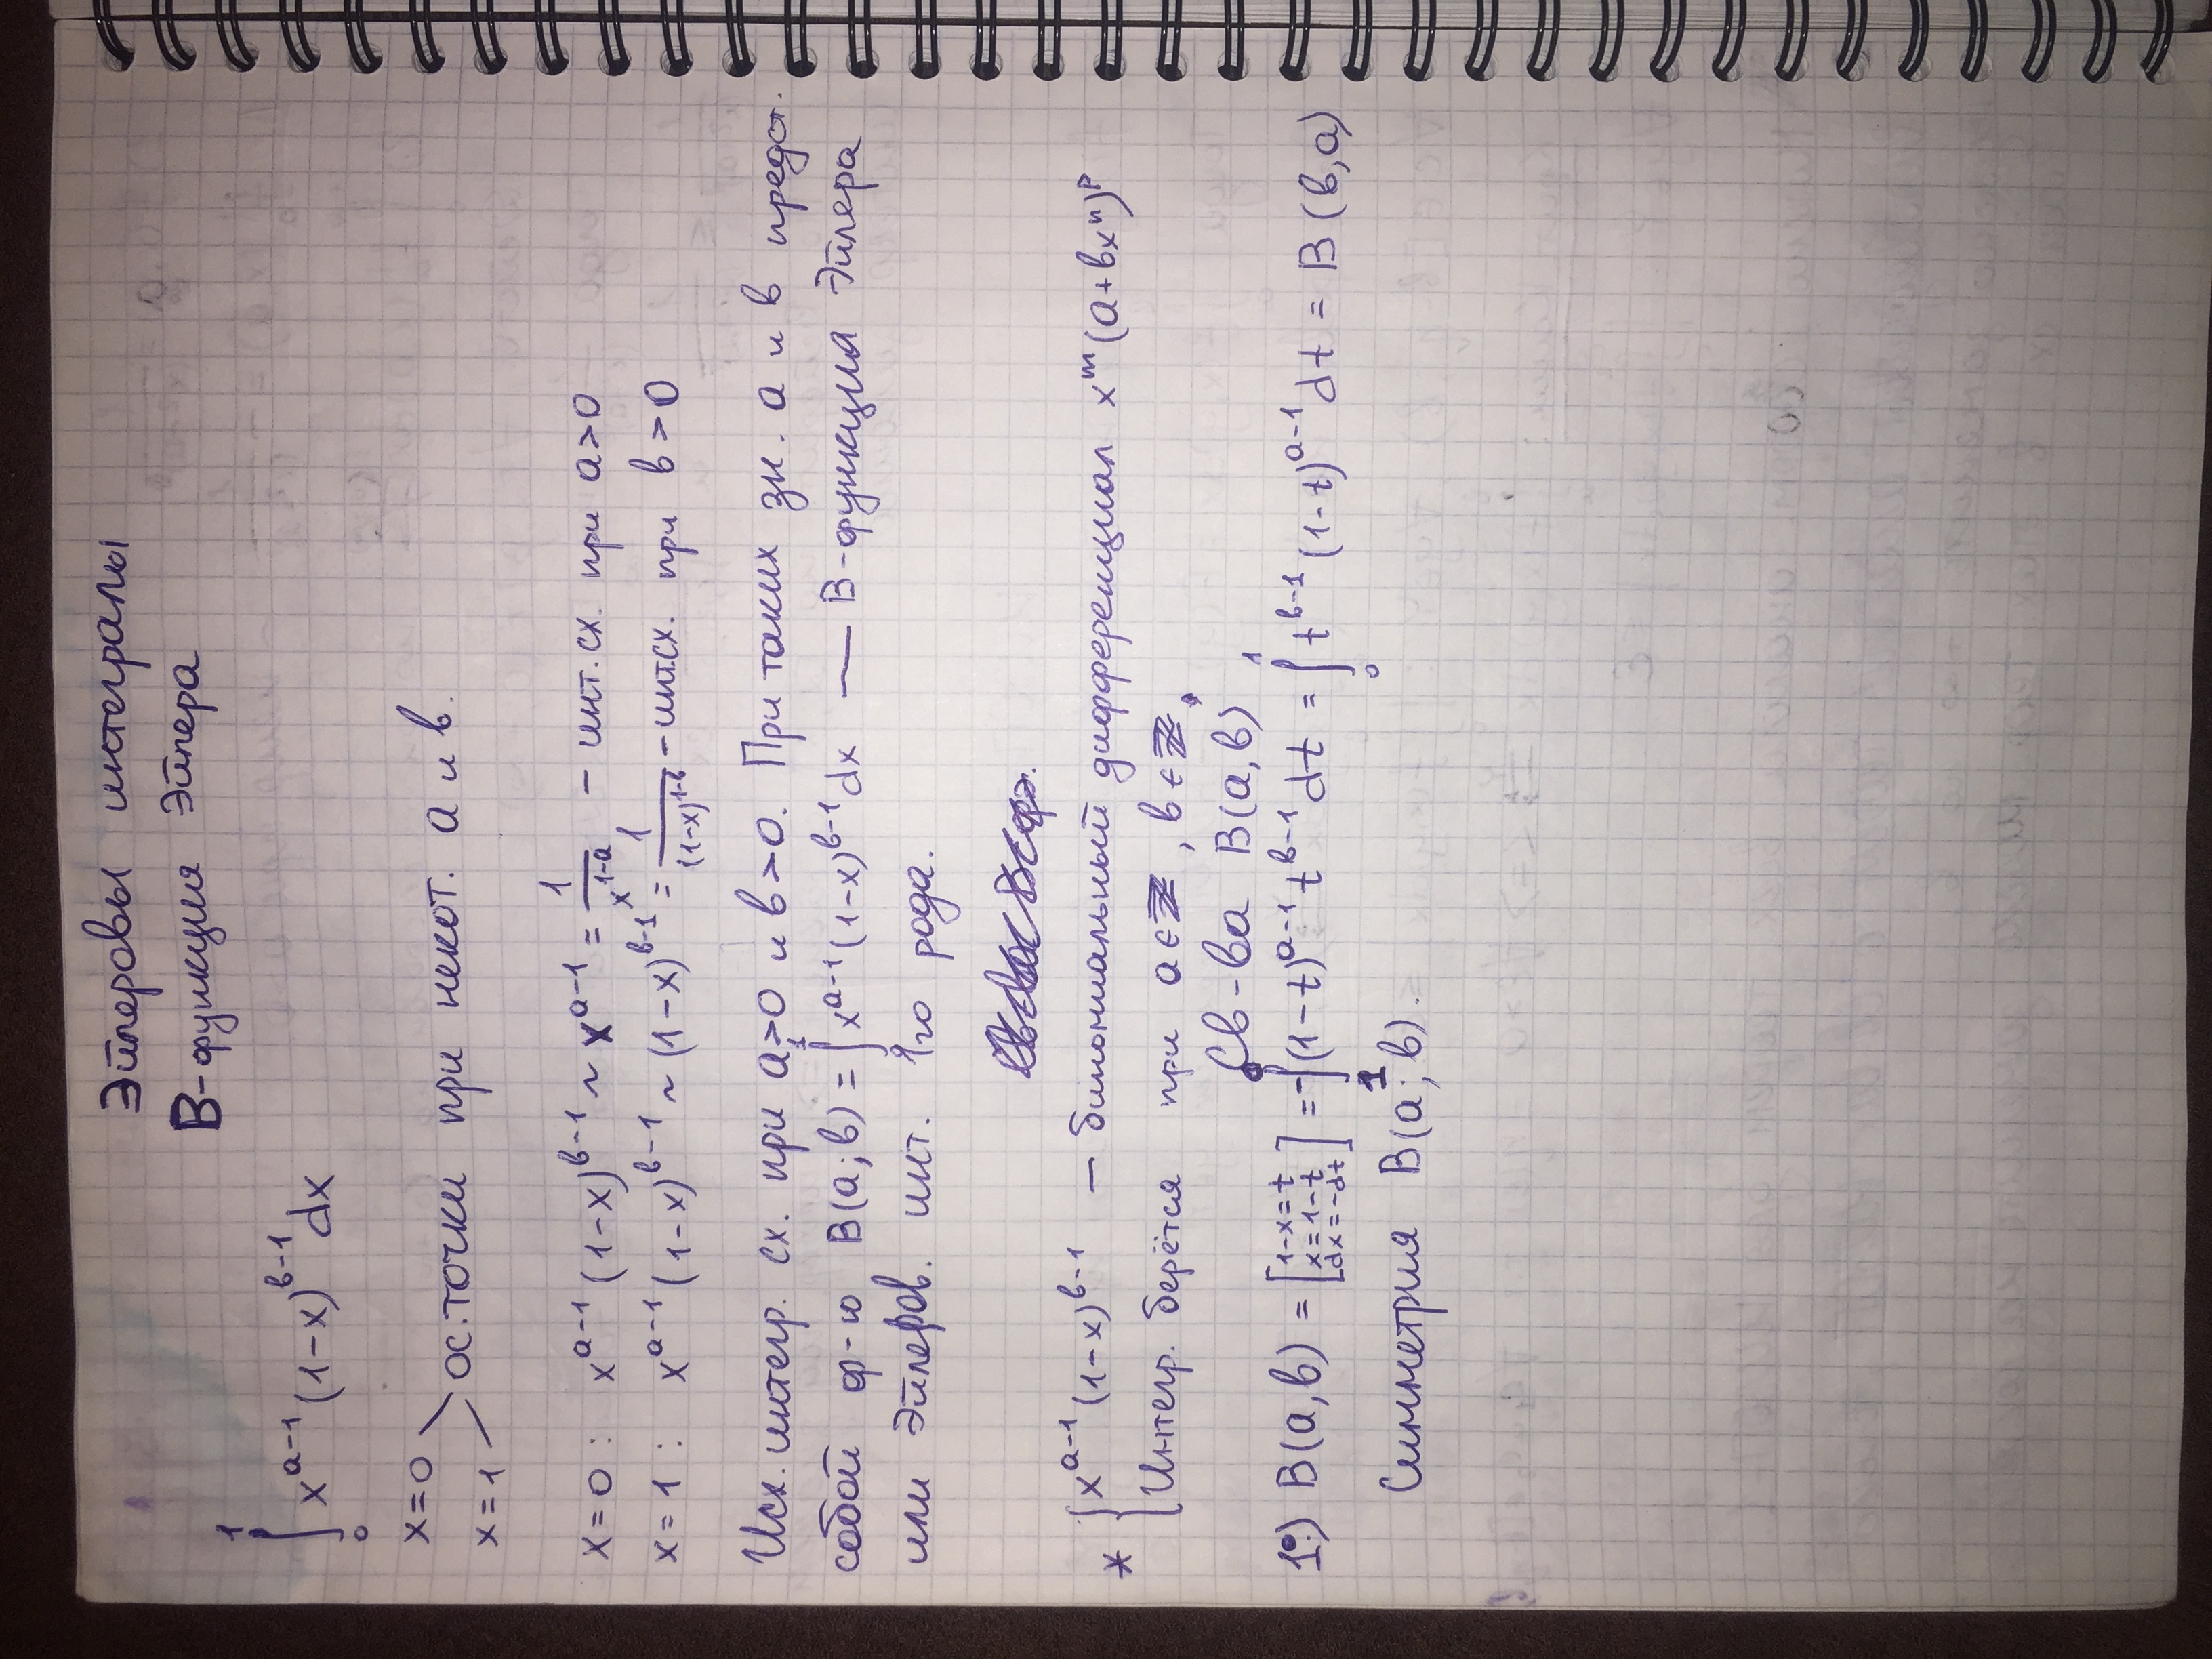 Эйлеровы интегралы
B-функция Эйлера
∫₀¹ x^{a-1} (1-x)^{b-1} dx
x=0
x=1
ос. точки при некот. a и b.
x=0: x^{a-1} (1-x)^{b-1} ~ x^{a-1} = 1/x^{1-a} – инт. сх. при a>0
x=1: x^{a-1} (1-x)^{b-1} ~ (1-x)^{b-1} = 1/(1-x)^{1-b} – инт.сх. при b>0
Исх. интегр. сх. при a>0 и b>0. При таких зн. a и b предст.
собой ф-ю B(a;b) = ∫₀¹ x^{a-1} (1-x)^{b-1} dx — B-функция Эйлера
или Эйлеров. инт. 1го рода.
* { x^{a-1} (1-x)^{b-1} – биномиальный дифференциал x^m (a+bx^n)^p
Интегр. берётся при a∈ℤ, b∈ℤ,
Св-ва B(a,b)
1°.) B(a,b) = [1-x=t x=1-t dx=-dt] = -∫₁⁰ (1-t)^{a-1} t^{b-1} dt = ∫₀¹ t^{b-1} (1-t)^{a-1} dt = B(b,a)
Симметрия B(a;b).